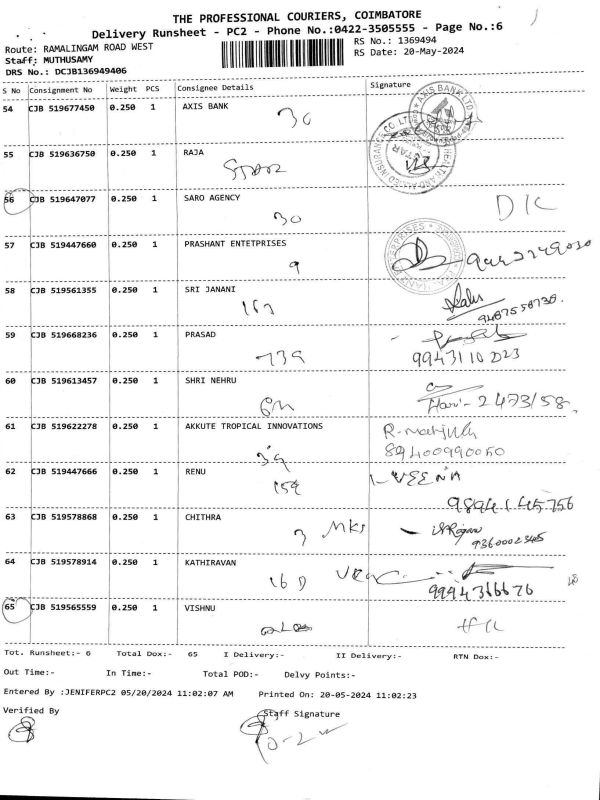 THE PROFESSIONAL COURIERS, COIMBATORE
Delivery Runsheet - PC2 - Phone No.:0422-3505555 - Page No.:6
Route: RAMALINGAM ROAD WEST
RS No.: 1369494
Staff: MUTHUSAMY
RS Date: 20-May-2024
DRS No.: DCJB136949406
S No Consignment No Weight PCS Consignee Details Signature
54 CJB 519677450 0.250 1 AXIS BANK
30
55 CJB 519636750 0.250 1 RAJA
56 CJB 519647077 0.250 1 SARO AGENCY
30
57 CJB 519447660 0.250 1 PRASHANT ENTETPRISES
9
58 CJB 519561355 0.250 1 SRI JANANI
59 CJB 519668236 0.250 1 PRASAD
99431 10 D23
60 CJB 519613457 0.250 1 SHRI NEHRU
Hari - 2473158
61 CJB 519622278 0.250 1 AKKUTE TROPICAL INNOVATIONS
89400990050
62 CJB 519447666 0.250 1 RENU
VEENA
98941 45756
63 CJB 519578868 0.250 1 CHITHRA
9360002345
64 CJB 519578914 0.250 1 KATHIRAVAN
16 D
9994366676
65 CJB 519565559 0.250 1 VISHNU
Tot. Runsheet:- 6 Total Dox:- 65 I Delivery:- II Delivery:- RTN Dox:-
Out Time:- In Time:- Total POD:- Delvy Points:-
Entered By :JENIFERPC2 05/20/2024 11:02:07 AM Printed On: 20-05-2024 11:02:23
Verified By Staff Signature